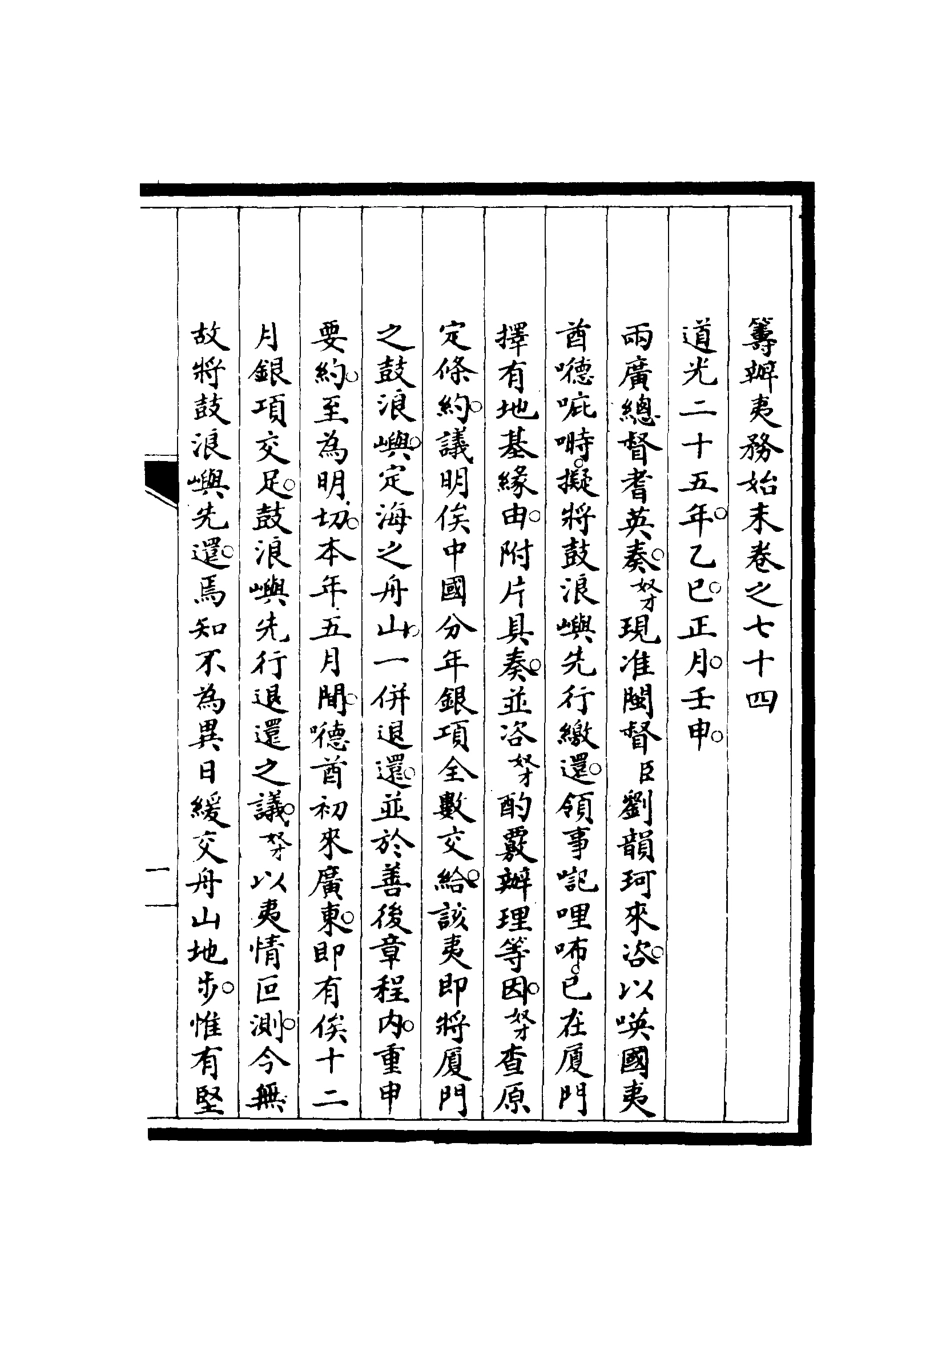 籌辦夷務始末卷之七十四
道光二十五年。乙巳。正月。壬申。
兩廣總督耆英奏。奴才現准閩督臣劉韻珂來咨。以𠸄國夷
酋嘜呲嘶。擬將鼓浪嶼先行繳還。領事記哩咘。已在厦門
擇有地基緣由。附片具奏。並咨奴才酌覈辦理等因。奴才查原
定條約。議明俟中國分年銀項全數交給。該夷即將厦門
之鼓浪嶼。定海之舟山。一併退還。並於善後章程內。重申
要約。至為明切。本年五月間。嘜酋初來廣東。即有俟十二
月銀項交足。鼓浪嶼先行退還之議。奴才以夷情叵測。今無
故將鼓浪嶼先還。焉知不為異日緩交舟山地步。惟有堅
一